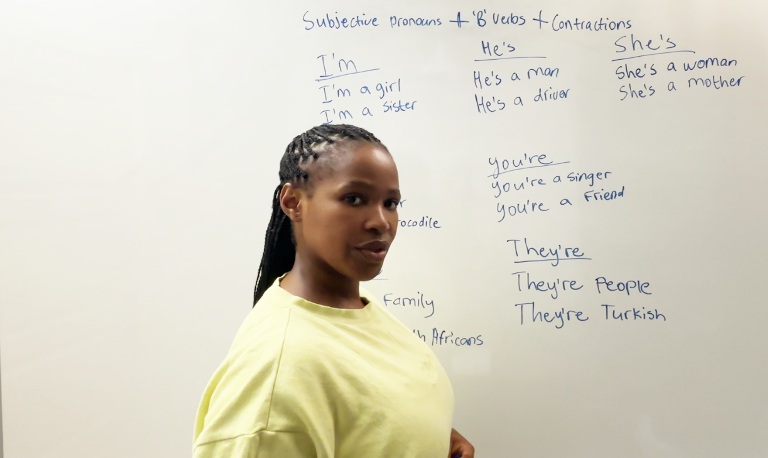 Subjective pronouns + 'B' verbs + Contractions
I'm
I'm a girl
I'm a sister
He's
He's a man
He's a driver
She's
She's a woman
She's a mother
you're
you're a singer
you're a Friend
They're
They're People
They're Turkish
Family
Africans